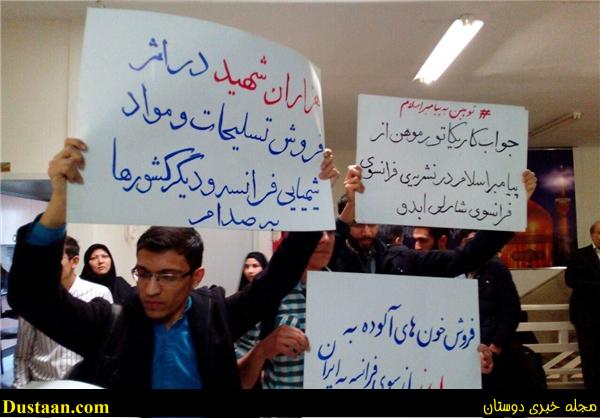 هزاران شهید در اثر
فروش تسلیحات و مواد
شیمیایی فرانسه و دیگر کشورها
به صدام
# توهین به پیامبر اسلام
جواب کاریکاتور موهن از
پیامبر اسلام در نشریه ی فرانسوی
فرانسوی شارلی ابدو
فروش خون های آلوده به
ایدز از سوی فرانسه به ایران
Dustaan.com
مجله خبری دوستان